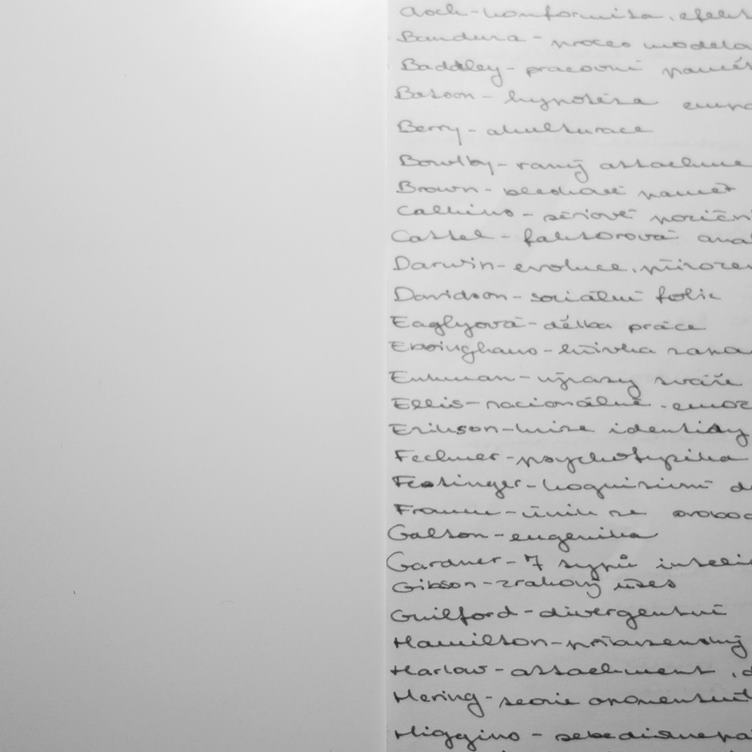 Asch - konformita, efekt
Bandura - proces modelo
Baddley - pracovní paměť
Batson - hypotéza empa
Berry - akulturace
Bowlby - raný attachme
Brown - blesková paměť
Calkins - sériově poziční
Cattel - faktorová ana
Darwin - evoluce, přiroze
Davidson - sociální
Eaglyová - dělba práce
Ebbinghaus - křivka zapa
Eukman - výrazy tváře
Ellis - racionálně - emoc
Erikson - krize identity
Fechner - psychofyzika
Festinger - kognitivní d
Fromm - únik ze svobod
Galton - eugenika
Gardner - 7 typů inteli
Gibson - zrakový útes
Guilford - divergentní
Hamilton - příbuzenský
Harlow - attachment, d
Hering - teorie oponentní
Higgins - sebediskrepa